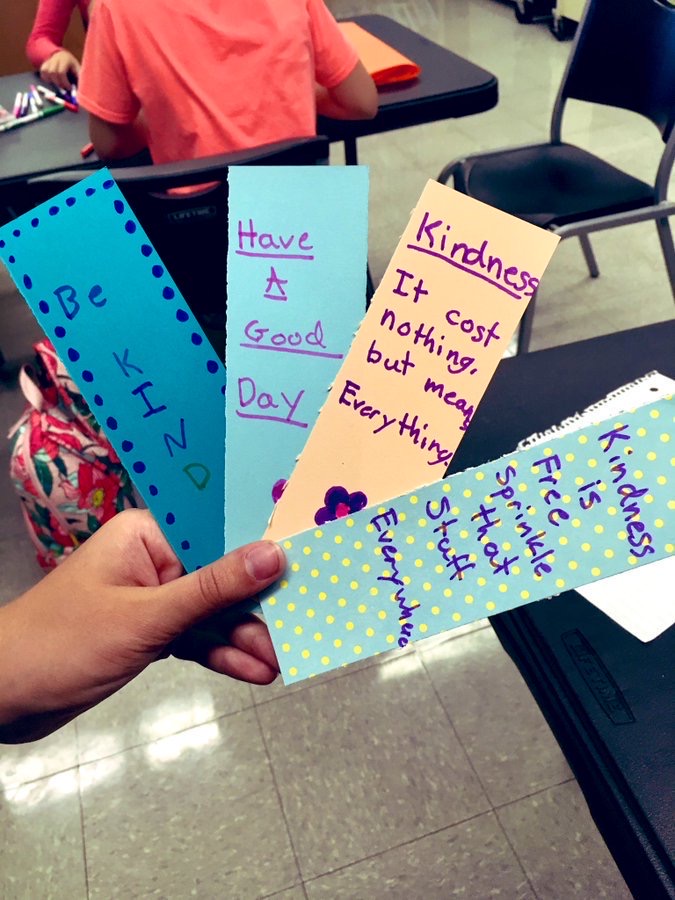 Be
KIND
Have
A
Good
Day
Kindness
It cost
nothing,
but means
Everything.
Kindness
is
Free
Sprinkle
that
Stuff
Everywhere
LIFETIME
LIFETIME